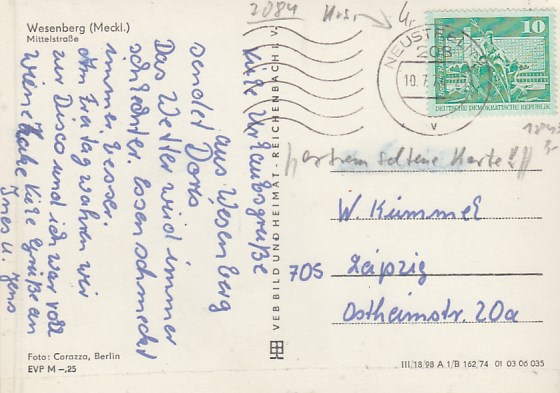 Wesenberg (Meckl.)
Mittelstraße
2084
NEUSTRELITZ
208
10.7.
v
10
DEUTSCHE DEMOKRATISCHE REPUBLIK
Viele Urlaubsgrüße
aus Wesenberg
sendet Doris
Das Wetter wird immer
schlechter, Essen schmeckt
immer besser.
Am Freitag wahren wir
zur Disco und ich war voll
viele Grüße an
Ines u. Jens
VEB BILD UND HEIMAT · REICHENBACH i. V.
extrem seltene Karte!!
W. Kümmel
705 Leipzig
Ostheimstr. 20a
Foto: Corazza, Berlin
EVP M –,25
III/18/98 A 1/B 162/74 01 03 06 035